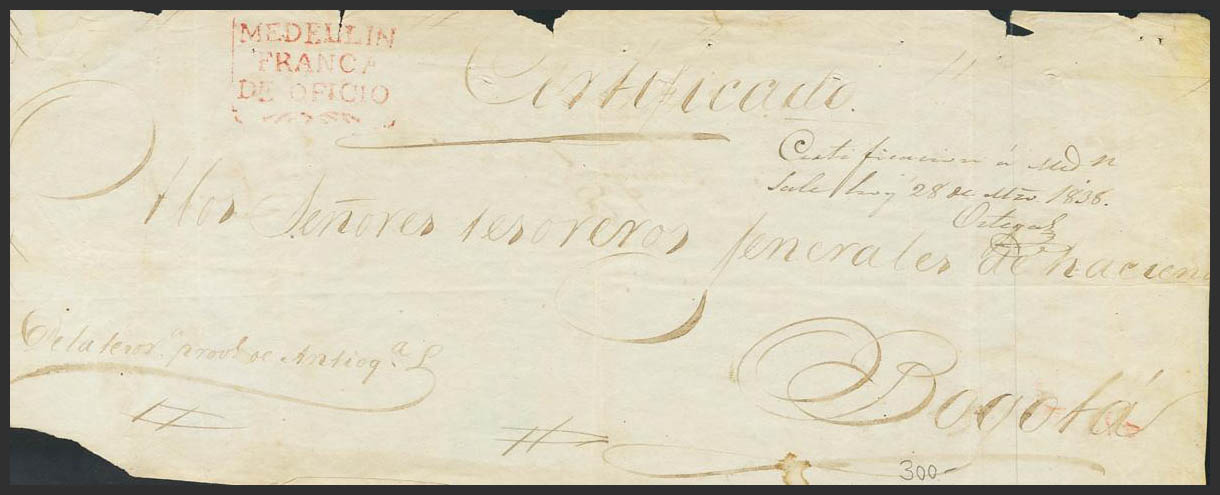 MEDELLIN
FRANCA
DE OFICIO
Certificado.
Certificacion á Med n
Sale hoy 28 de Mzo 1836.
Ortega
A los Señores tesoreros jenerales de haciend
De la tesor.a prov.l de Antioq.a
Bogotá
300